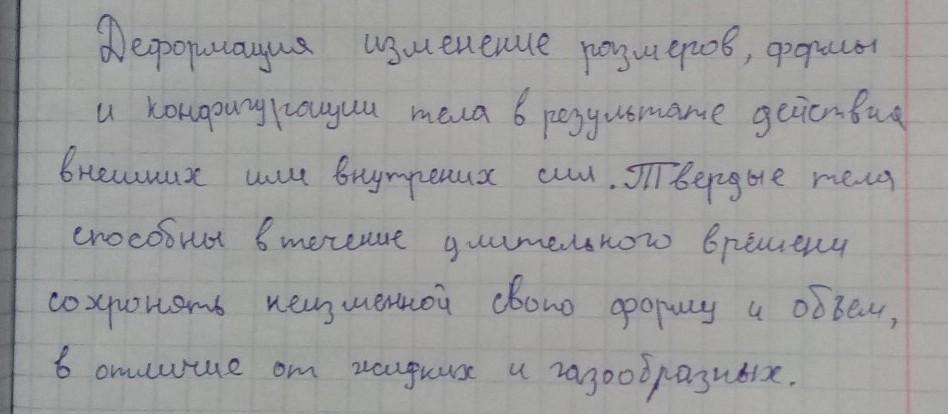 Деформация изменение размеров, формы
и конфигурации тела в результате действия
внешних или внутрених сил. Твердые тела
способны в течение длительного времени
сохронять неизменной свою форму и объем,
в отличие от жидких и газообразных.